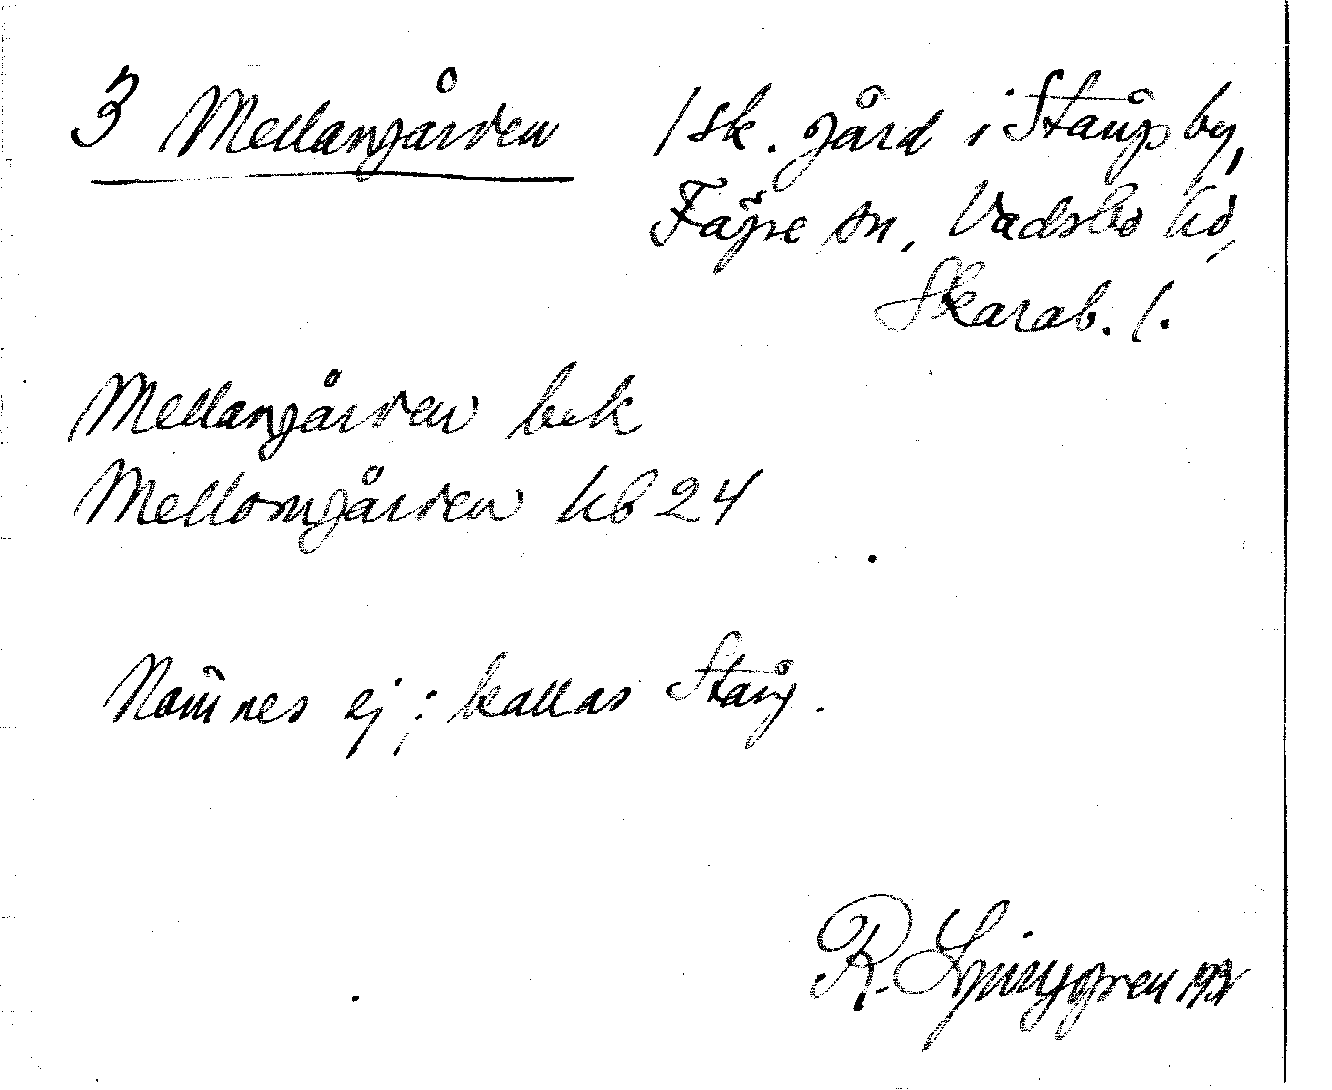 3 Mellangården /sk. gård i Stångs by,
Fägre sn, Vadsbo hd,
Skarab. l.
Mellangården bek
Mellomgården kb 24
Nämnes ej; kallas Stång.
R. Ljunggren